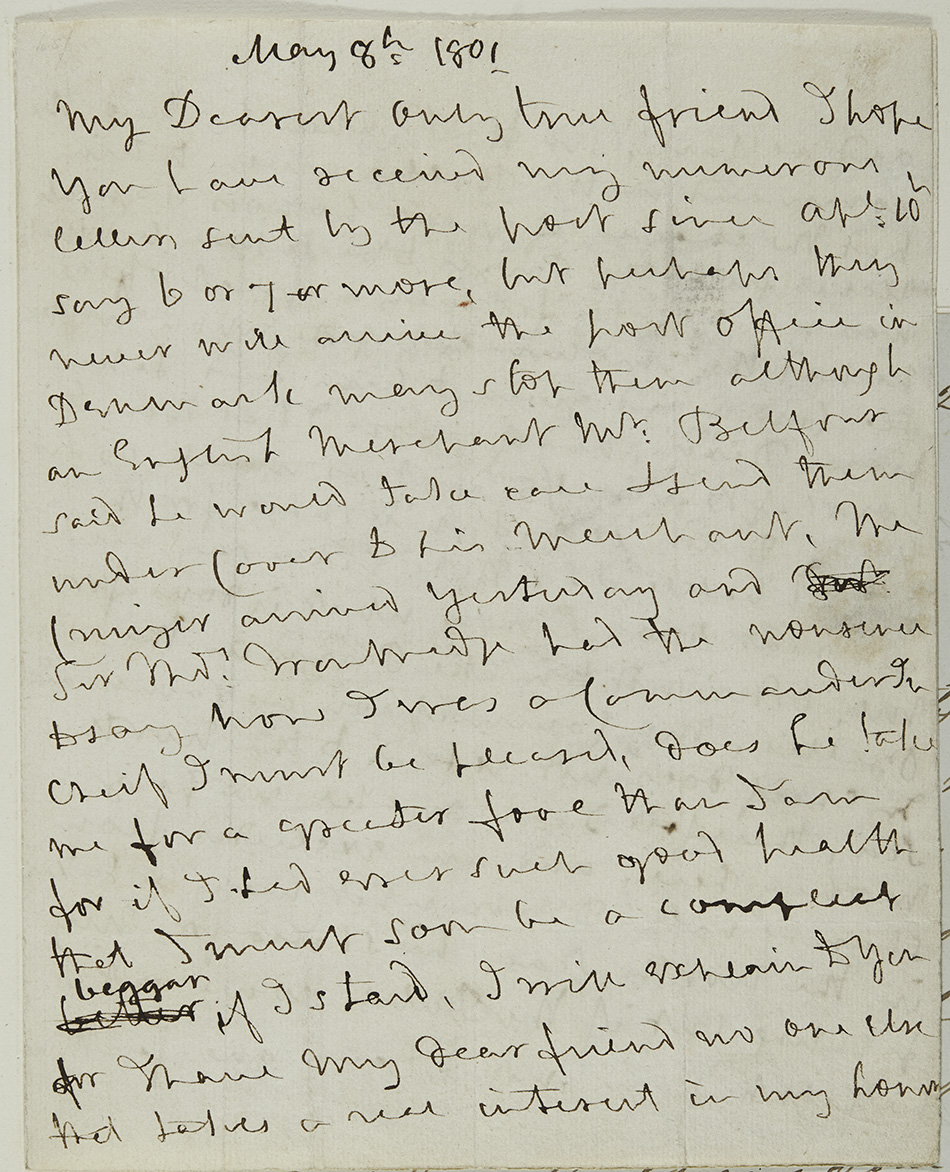 May 8th 1801
My Dearest only true friend I hope
You have received my numerous
letters sent by the post since Apl: 10h
say 6 or 7 or more, but perhaps they
never will arrive the post office in
Denmark may stop them although
an English Merchant Mr. Belfour
said he would take care & send them
under Cover to his Merchant, The
Cruizer arrived Yesterday and
Sir Thos: Troubridge had the nonsence
to say now I was a Commander In
Cheif I must be pleased, does he take
me for a greater fool than I am
for if I had ever such good health
that I must soon be a compleet
beggar if I staid, I will explain to You
for I have My dear friend no one else
that takes a real interest in my honor